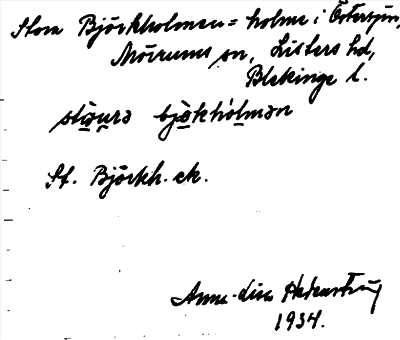 Stora Björkholmen = holme i Östersjön,
Mörrums sn, Listers hd,
Blekinge l.
stɷ̀ura bjö̀khɷ́lmən
St. Björkh. ek.
Anna-Lisa
1934.